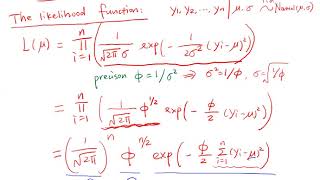 The likelihood function: y₁, y₂, ..., yₙ | μ, σ iid ~ Normal(μ, σ)
L(μ) = ∏ᵢ₌₁ⁿ ( 1/(√2π σ) exp(- 1/(2σ²) (yᵢ-μ)²)
precision φ = 1/σ² ⇒ σ² = 1/φ, σ = √1/φ
= ∏ᵢ₌₁ⁿ ( 1/√2π φ^(1/2) exp(- φ/2 (yᵢ-μ)²)
= (1/√2π)ⁿ φ^(n/2) exp(- φ/2 Σᵢ₌₁ⁿ (yᵢ-μ)²)